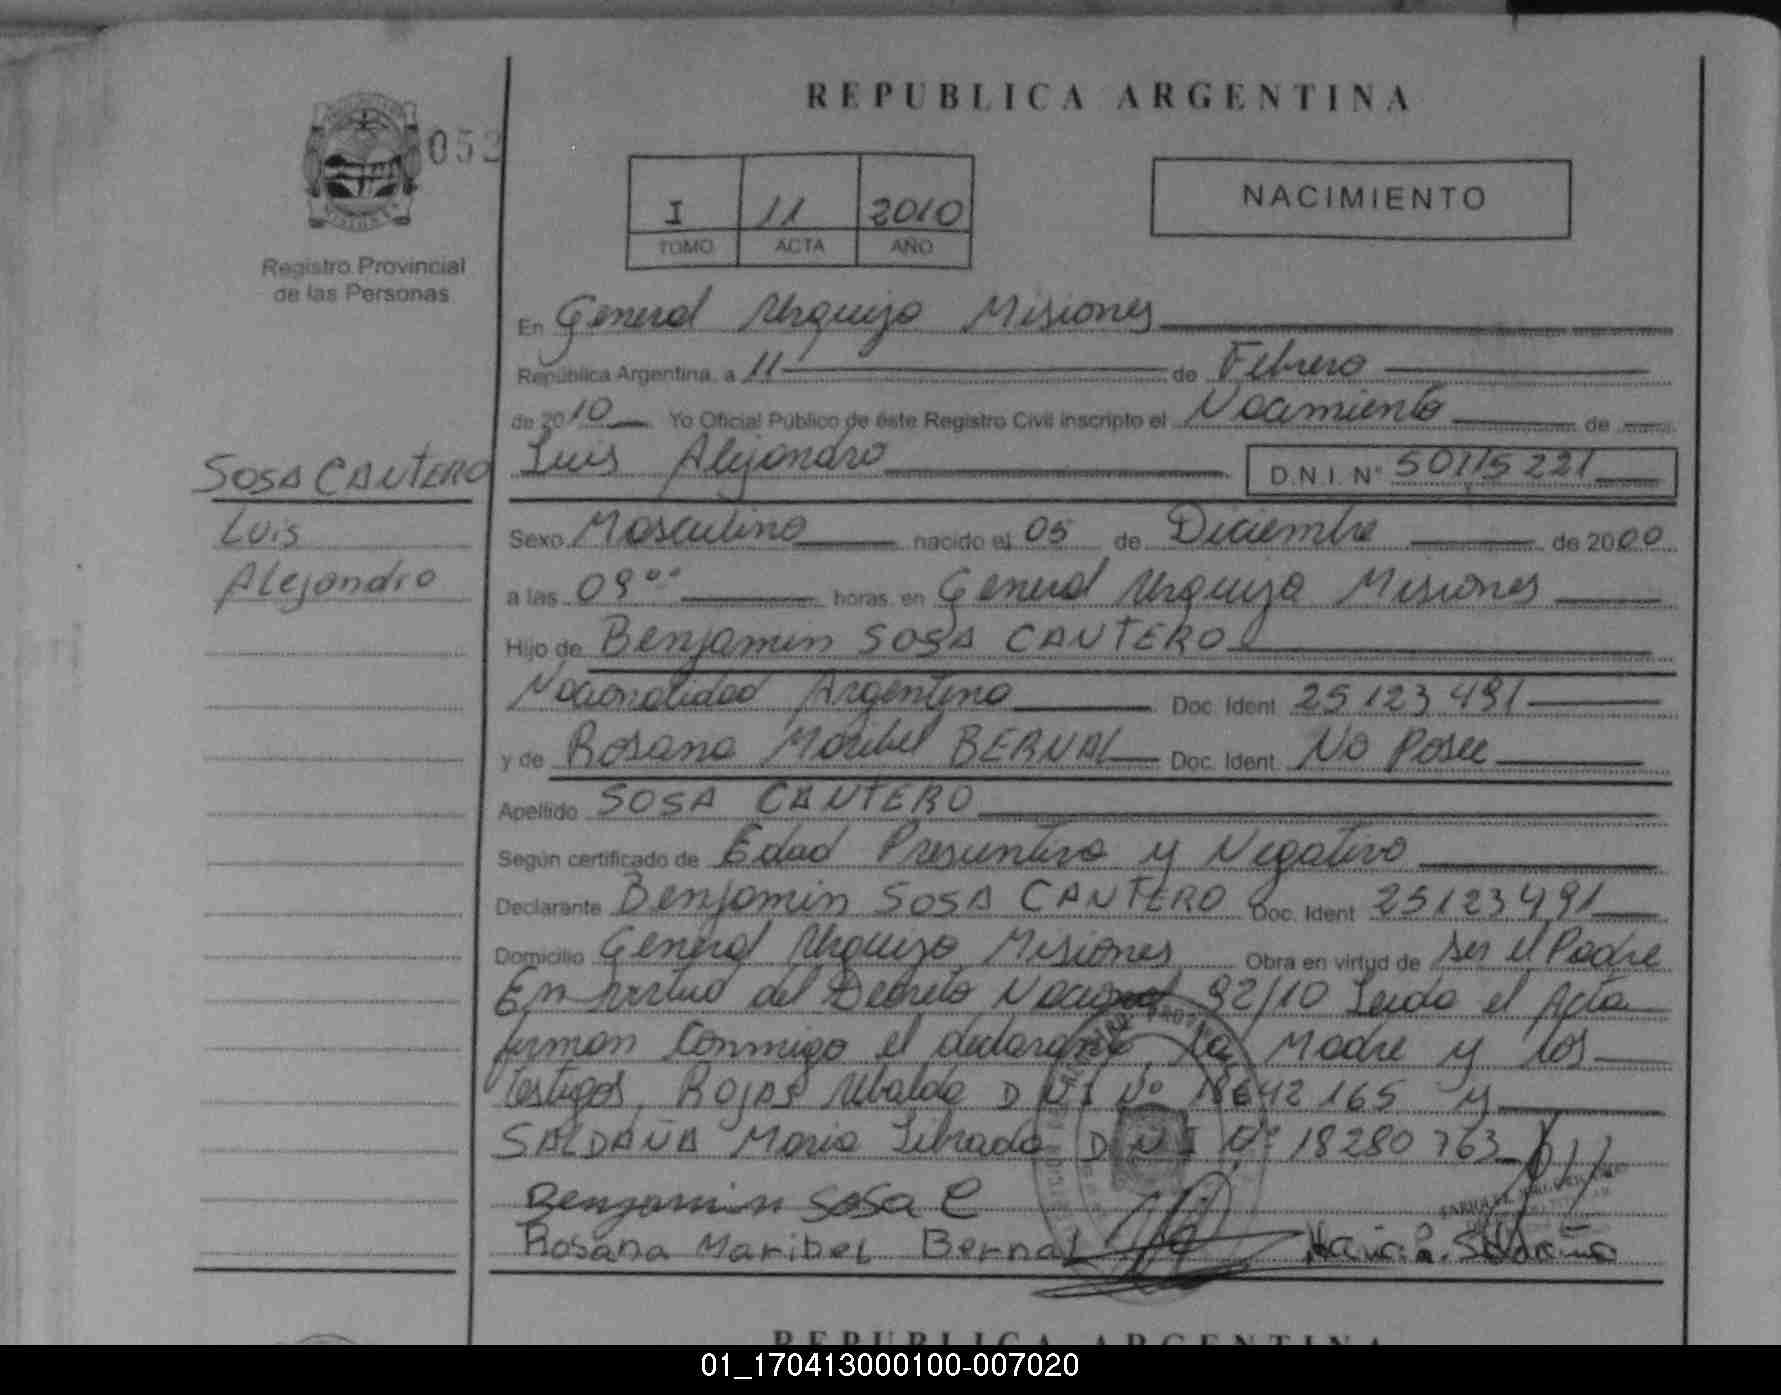 REPUBLICA ARGENTINA
052
I 11 2010
TOMO ACTA AÑO
NACIMIENTO
Registro Provincial
de las Personas
En General Urquiza Misiones
República Argentina, a 11 de Febrero
de 2010 Yo Oficial Público de éste Registro Civil inscripto el Nacimiento de
SOSA CANTERO
Luis
Alejandro
Luis Alejandro D.N.I. Nº 50115221
Sexo Masculino nacido el 05 de Diciembre de 2000
a las 09⁰⁰ horas, en General Urquiza Misiones
Hijo de Benjamin SOSA CANTERO
Nacionalidad Argentina Doc. Ident. 25123491
y de Rosana Maribel BERNAL Doc. Ident. No Posee
Apellido SOSA CANTERO
Según certificado de Edad Presuntiva y Negativo
Declarante Benjamin SOSA CANTERO Doc. Ident 25123491
Domicilio General Urquiza Misiones Obra en virtud de ser el Padre
En virtud del Decreto Nacional 92/10 Leida el Acta
firman conmigo el declarante, la Madre y los
testigos, ROJAS Ubaldo D N I Nº 18642165 y
SALDAÑA Maria Librada D N I Nº 18280763
Benjamin Sosa C
Rosana Maribel Bernal
Maria L. Saldaña
REPUBLICA ARGENTINA
01_170413000100-007020